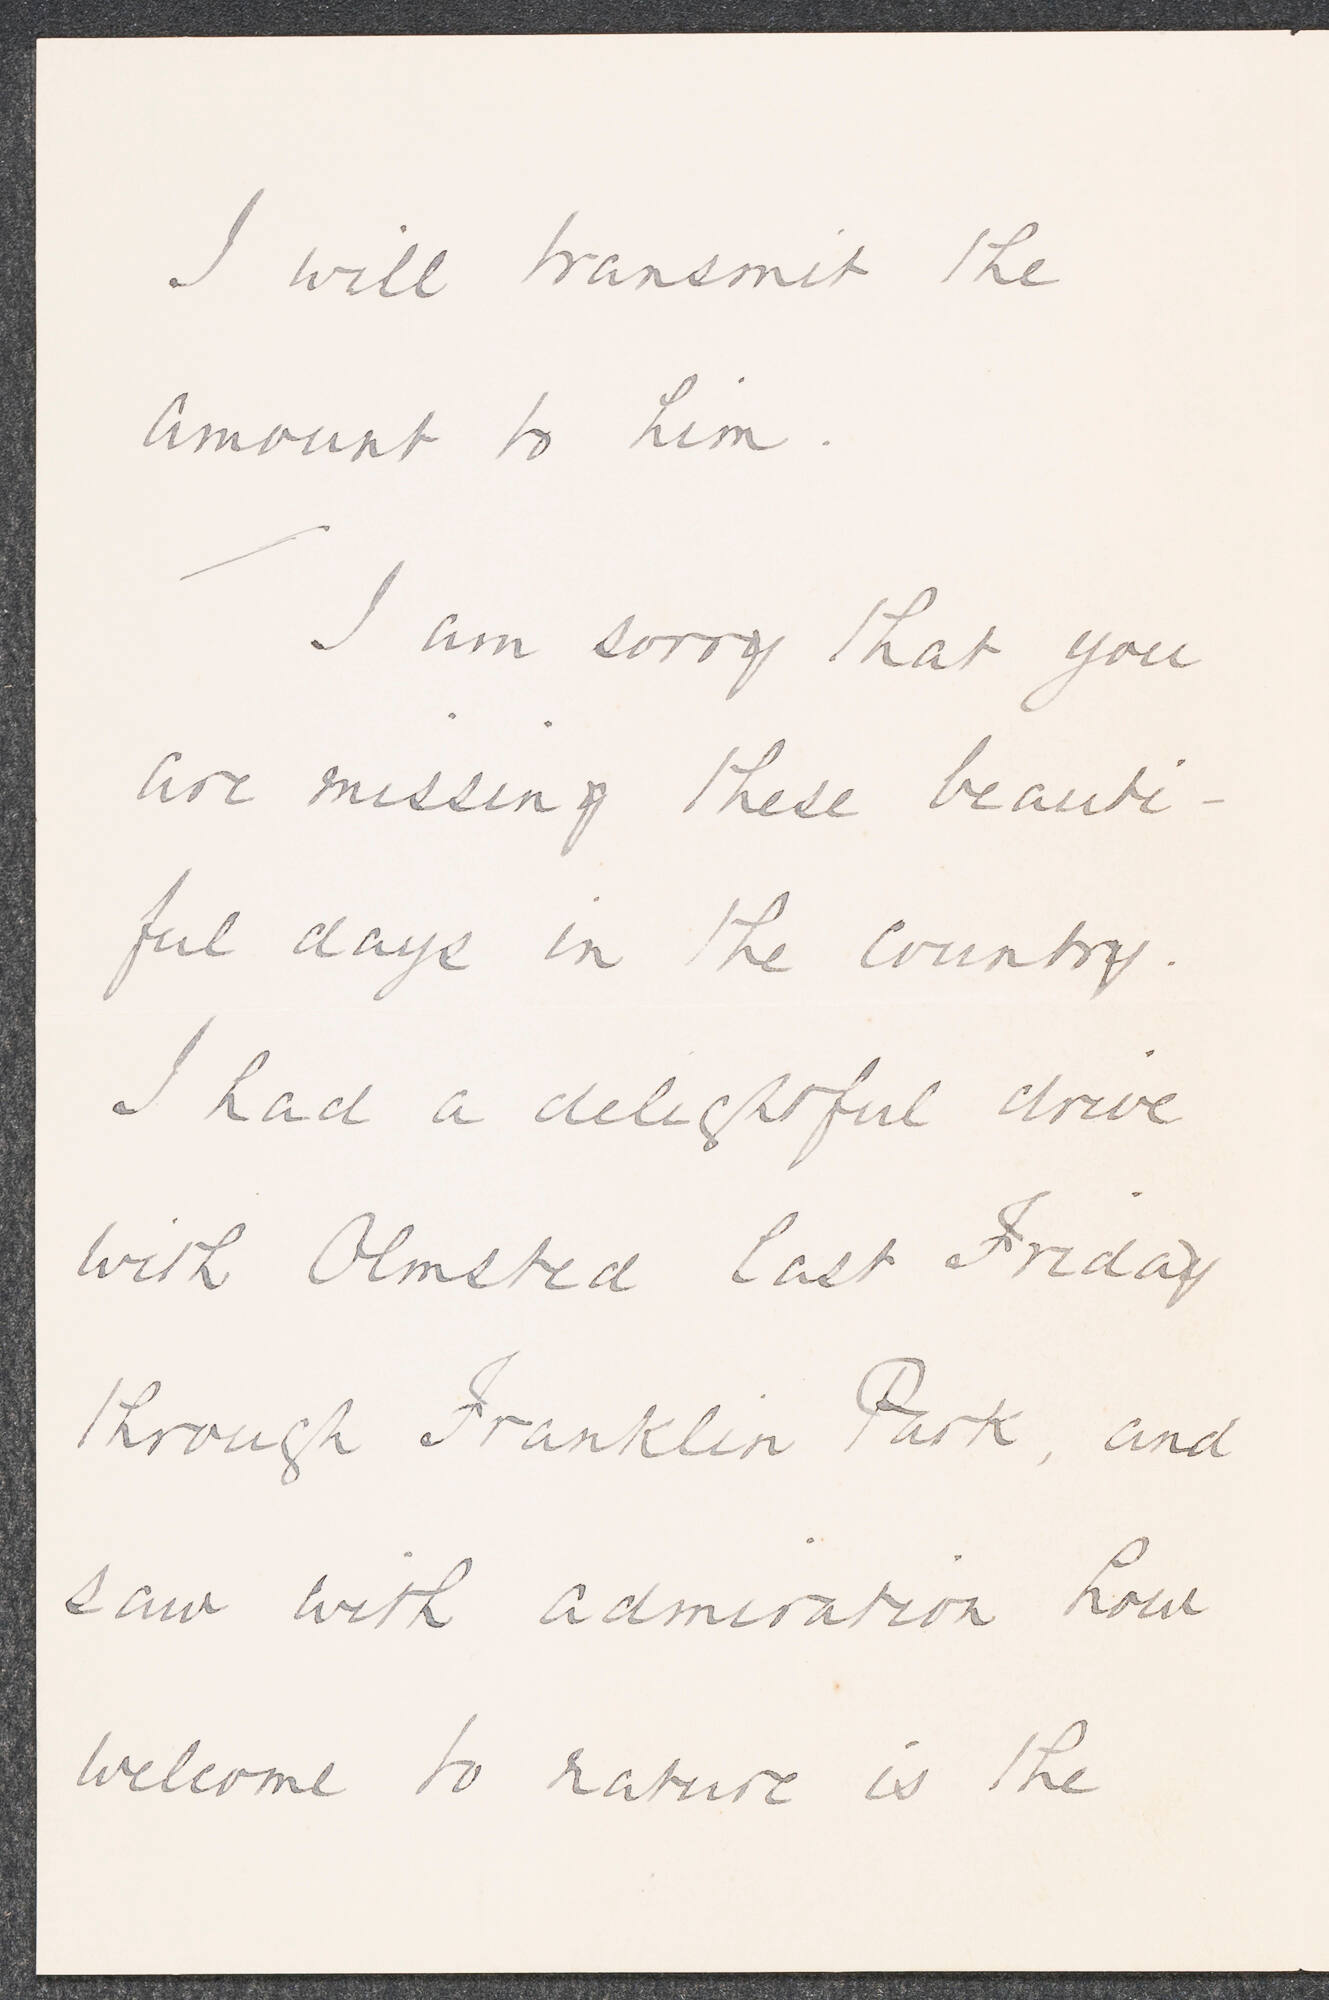 I will transmit the
amount to him.
I am sorry that you
are missing these beauti-
ful days in the country.
I had a delightful drive
with Olmsted last Friday
through Franklin Park, and
saw with admiration how
welcome to nature is the